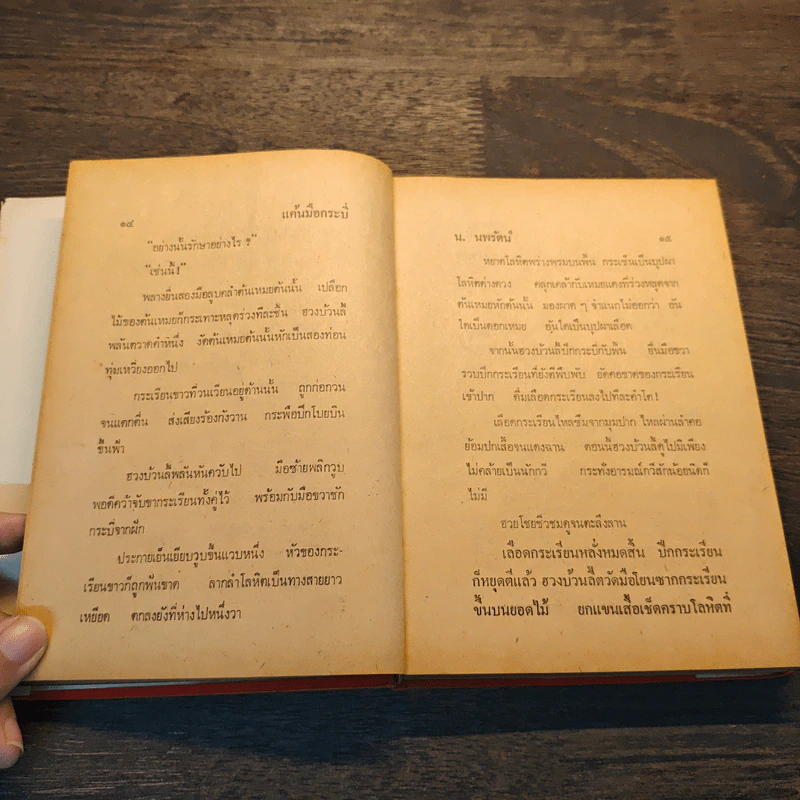 ๑๔ แค้นมือกระบี่
"อย่างนั้นรักษาอย่างไร ?"
"เช่นนี้!"
พลางยื่นสองมือลูบคลำต้นเหมยต้นนั้น เปลือก
ไม้ของต้นเหมยก็กระเทาะหลุดร่วงทีละชิ้น ฮวงบ้วนลี้
พลันตวาดคำหนึ่ง งัดต้นเหมยต้นนั้นหักเป็นสองท่อน
ทุ่มเหวี่ยงออกไป
กระเรียนขาวที่วนเวียนอยู่ด้านนั้น ถูกก่อกวน
จนแตกตื่น ส่งเสียงร้องกังวาน กระพือปีกโบยบิน
ขึ้นฟ้า
ฮวงบ้วนลี้พลันหันควับไป มือซ้ายพลิกวูบ
พอดีคว้าจับขากระเรียนทั้งคู่ไว้ พร้อมกับมือขวาชัก
กระบี่จากฝัก
ประกายเย็นเยียบวูบขึ้นแวบหนึ่ง หัวของกระ-
เรียนขาวก็ถูกฟันขาด ลากลำโลหิตเป็นทางสายยาว
เหยียด ตกลงยังที่ห่างไปหนึ่งวา
น. นพรัตน์ ๑๕
หยาดโลหิตพร่างพรมบนพื้น กระเซ็นเป็นบุปผา
โลหิตด่างดวง คลุกเคล้ากับเหมยแดงที่ร่วงหลุดจาก
ต้นเหมยหักต้นนั้น มองผาด ๆ จำแนกไม่ออกว่า อัน
ใดเป็นดอกเหมย อันใดเป็นบุปผาเลือด
จากนั้นฮวงบ้วนลี้ปักกระบี่กับพื้น ยื่นมือขวา
รวบปีกกระเรียนที่ยังตีพึบพับ ยัดคอขาดของกระเรียน
เข้าปาก ดื่มเลือดกระเรียนลงไปทีละคำโต!
เลือดกระเรียนไหลซึมจากมุมปาก ไหลผ่านลำคอ
ย้อมปกเสื้อจนแดงฉาน ตอนนี้ฮวงบ้วนลี้ดูไปมิเพียง
ไม่คล้ายเป็นนักกวี กระทั่งอารมณ์กวีสักน้อยนิดก็
ไม่มี
ฮวยโชยชิวชมดูจนตะลึงลาน
เลือดกระเรียนหลั่งหมดสิ้น ปีกกระเรียน
ก็หยุดตีแล้ว ฮวงบ้วนลี้ตวัดมือโยนซากกระเรียน
ขึ้นบนยอดไม้ ยกแขนเสื้อเช็ดคราบโลหิตที่